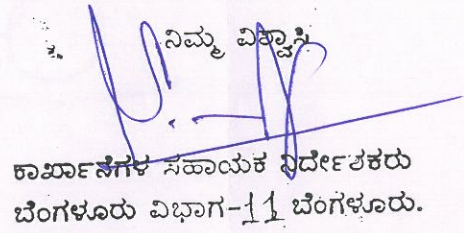 ನಿಮ್ಮ ವಿಶ್ವಾಸಿ
ಕಾರ್ಖಾನೆಗಳ ಸಹಾಯಕ ನಿರ್ದೇಶಕರು
ಬೆಂಗಳೂರು ವಿಭಾಗ-11 ಬೆಂಗಳೂರು.